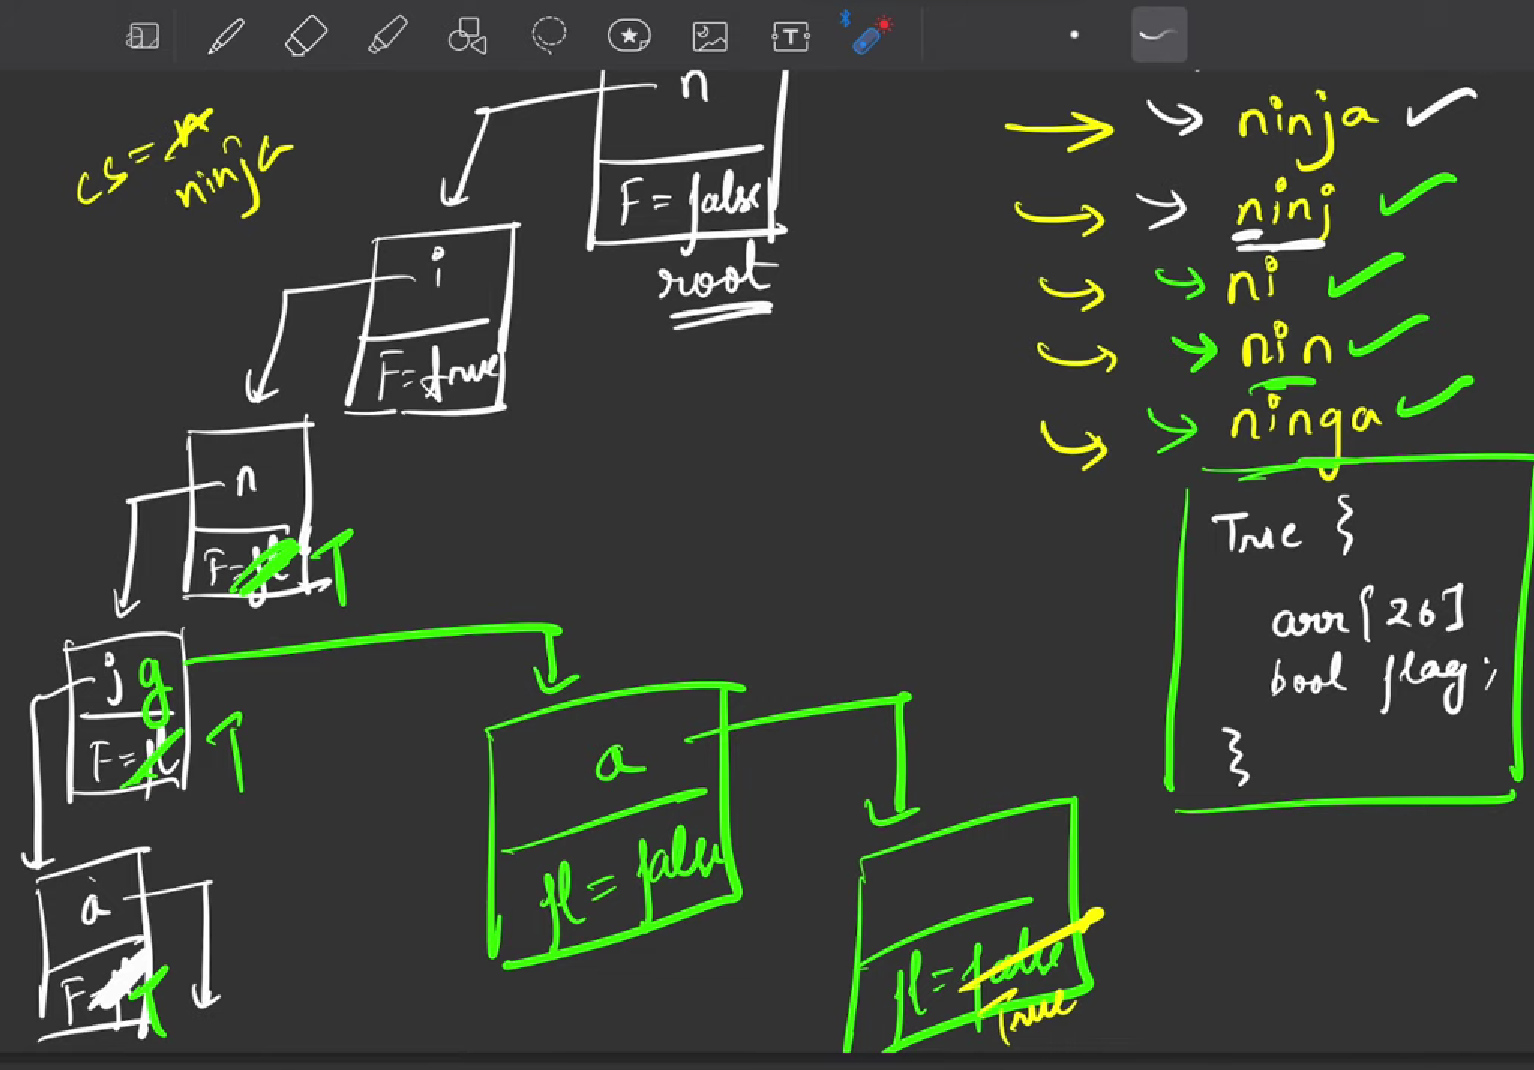 cs = ninja
n
F = false
root
i
F = true
n
F = fl T
j g
F = fl T
a
F = T
a
fl = false
fl = false
True
ninja
ninj
ni
nin
ninga
True {
arr[26]
bool flag;
}